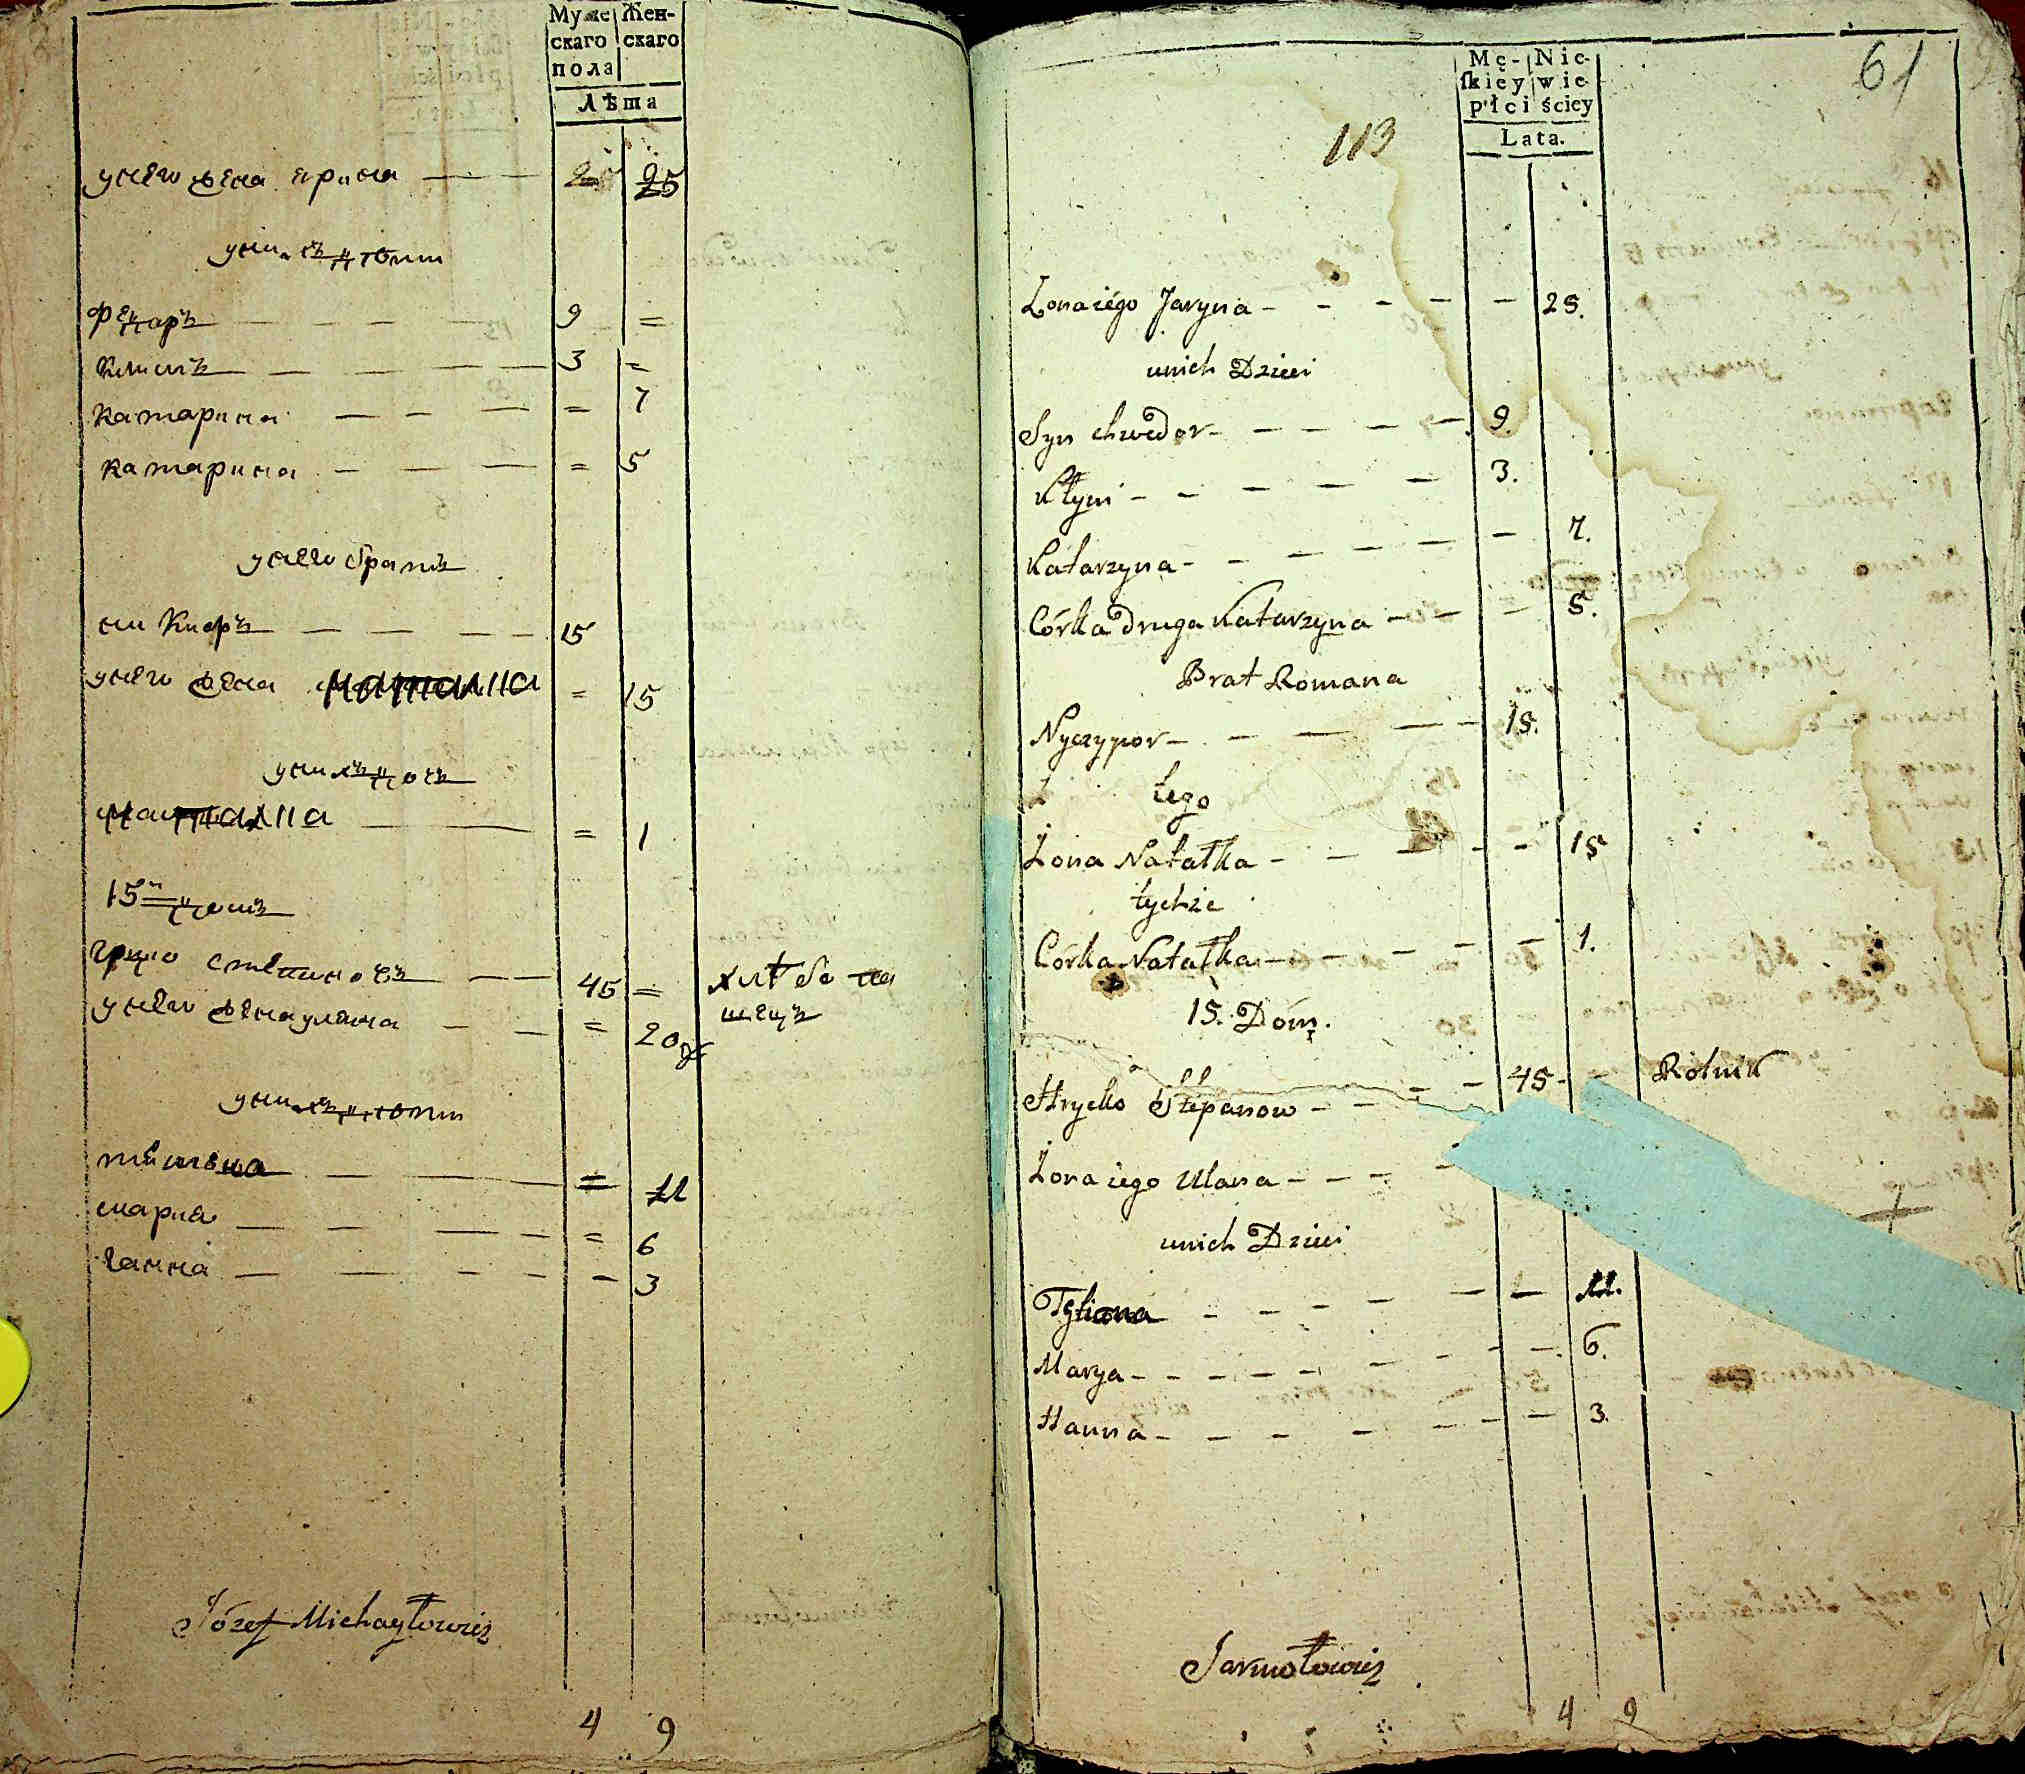 Муже Жен-
скаго скаго
пола
Лѣта
унего жена ярина 25 25
уних дѣтти
Фенаръ 9 =
Климъ 3 =
Катарина = 7
Катарина = 5
унего братъ
никиоръ 15
унего жена Наталиа = 15
унихъ дочъ
Наталиа = 1
15й домъ
грицко степановъ 45 = хлѣбо па
шецъ
унего жена уляна = 20
унихъ дѣтти
тѣтиана = 11
мария = 6
ганна - 3
Józef Michayłowicz
4 9
61
113
Mę- Nie-
ſkiey wie-
płci ściey
Lata.
Zona iégo Jaryna 25.
unich Dzieci
Syn chwedor 9.
Kłym 3.
Katarzyna 7.
Córka druga Katarzyna 5.
Brat Romana
Nyczypor 15.
tego
Żona Natałka 15
tychże
Córka Natałka 1.
15. Dóm.
Hrycko Stepanow 45 Rolnik
Żona iego Ulana
unich Dzieci
Tetiana 11.
Marya 6.
Hanna 3.
Jarmołowicz
4 9